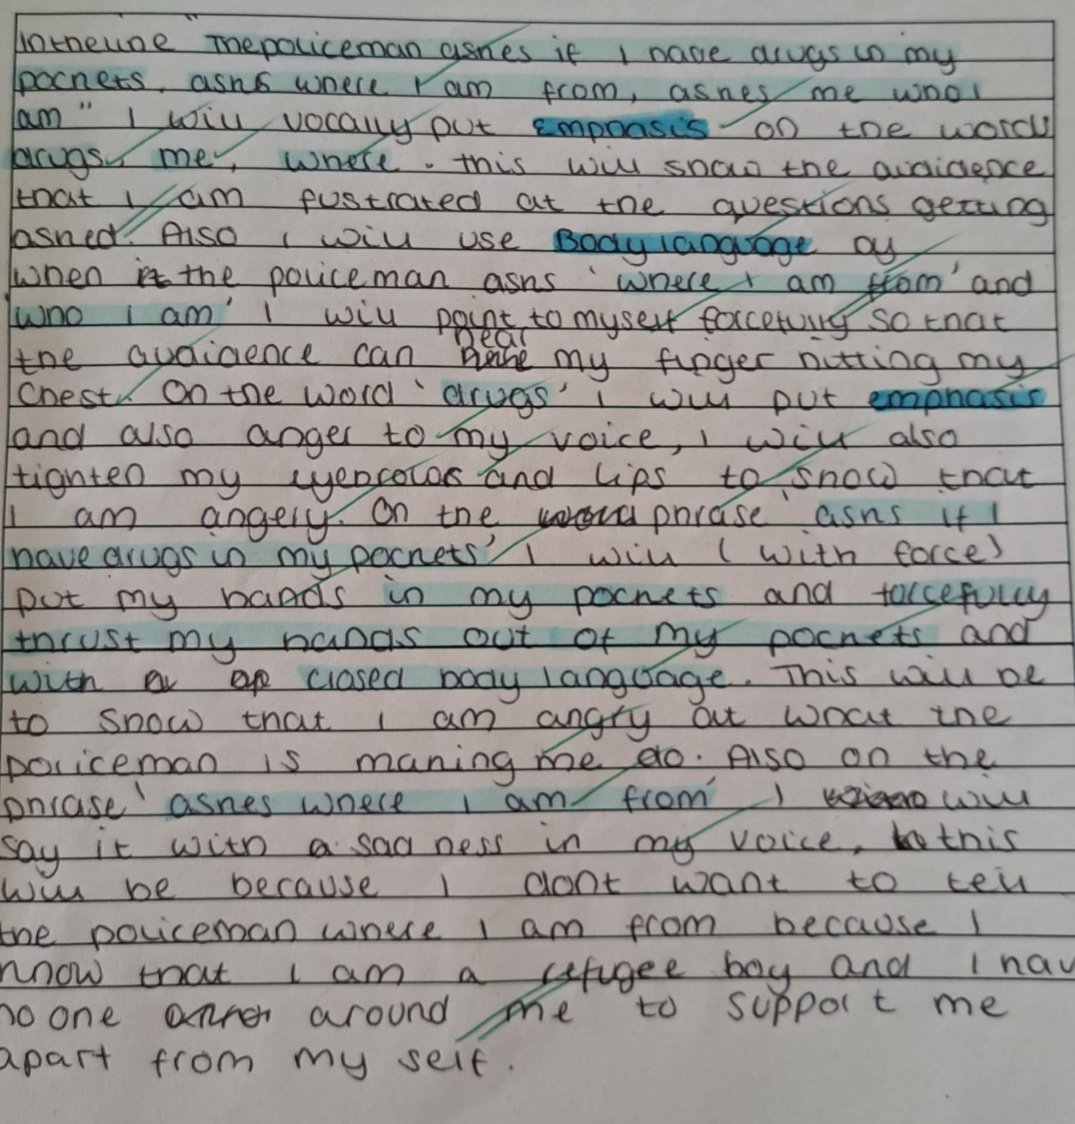 In the line "The policeman askes if I have drugs in my
pockets, asks where I am from, askes me who I
am" I will vocally put emphasis on the words
drugs, me, where. this will show the audience
that I am fustrated at the questions getting
asked. Also I will use Body language by
when the policeman asks 'where I am from' and
'who I am' I will point to myself forcefully so that
the audience can hear my finger hitting my
chest. On the word 'drugs' I will put emphasis
and also anger to my voice, I will also
tighten my eyebrows and lips to show that
I am angery. On the phrase 'asks if I
have drugs in my pockets' I will (with force)
put my hands in my pockets and forcefully
thrust my hands out of my pockets and
with a closed body language. This will be
to show that I am angry at what the
policeman is making me do. Also on the
phrase 'askes where I am from' I will
say it with a sadness in my voice, this
will be because I dont want to tell
the policeman where I am from because I
know that I am a refugee boy and I hav
no one around me to support me
apart from my self.